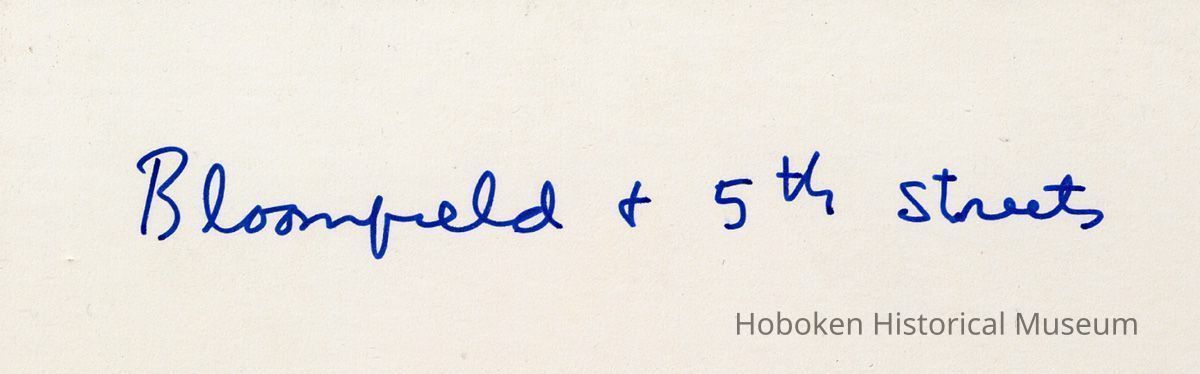 Bloomfield + 5th streets
Hoboken Historical Museum